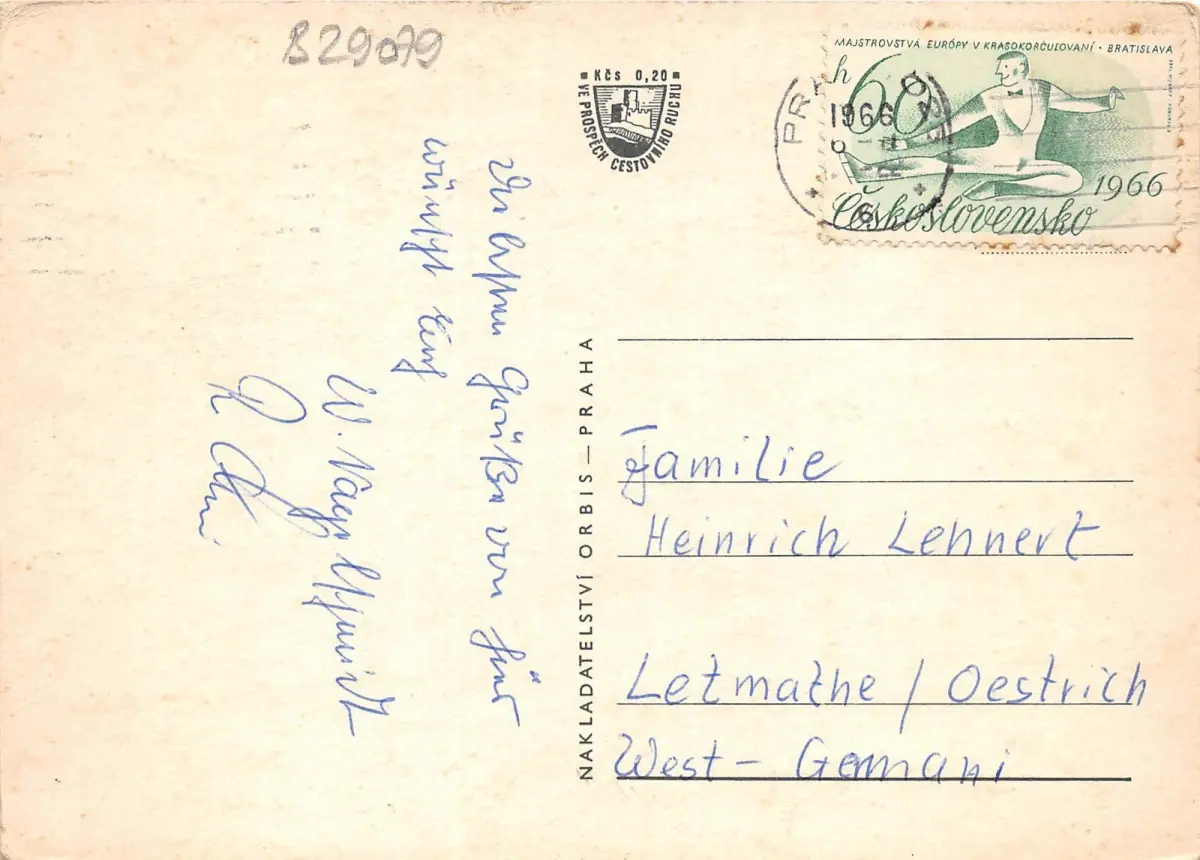 B29079
Kčs 0,20
VE PROSPĚCH CESTOVNÍHO RUCHU
MAJSTROVSTVÁ EURÓPY V KRASOKORČUĽOVANÍ • BRATISLAVA
h 60
1966
Československo
PRAHA 025
1966
Die besten Grüße von hier
wünscht euch
W.
R
NAKLADATELSTVÍ ORBIS — PRAHA
Familie
Heinrich Lennert
Letmathe / Oestrich
West - Germani